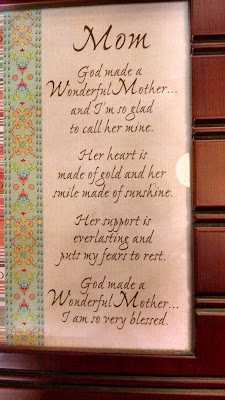 Mom
God made a
Wonderful Mother...
and I'm so glad
to call her mine.
Her heart is
made of gold and her
smile made of sunshine.
Her support is
everlasting and
puts my fears to rest.
God made a
Wonderful Mother...
I am so very blessed.